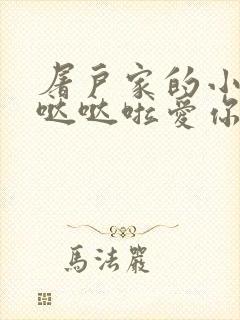 屠户家的小
哒哒啦爱你
馬法嚴